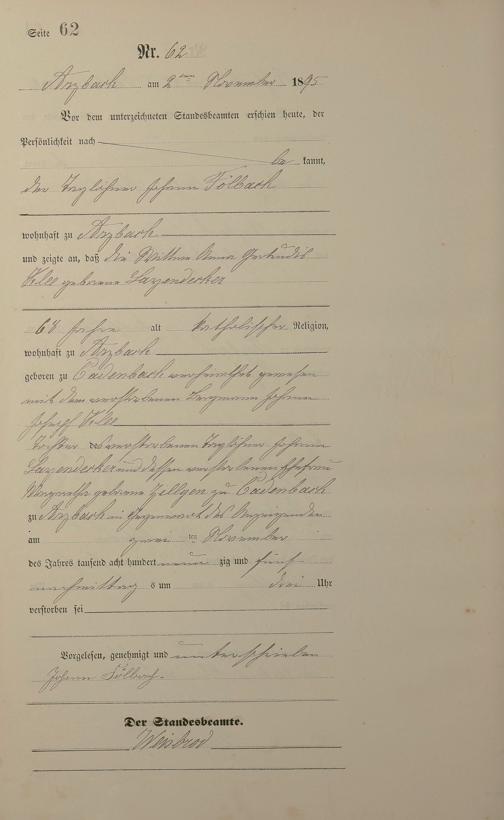 Seite 62
Nr. 62
Arzbach am 2ten November 1895
Vor dem unterzeichneten Standesbeamten erschien heute, der
Persönlichkeit nach
be kannt,
der Taglöhner Johann Tölbach
wohnhaft zu Arzbach
und zeigte an, daß die Wittwe Anna Gertrudis
Klee geborene
68 Jahre alt katholischer Religion,
wohnhaft zu Arzbach
geboren zu Cadenbach verheirathet gewesen
mit dem verstorbenen Bergmann Johann
Joseph Klee
Tochter des verstorbenen Taglöhner Johann
und dessen verstorbenen Ehefrau
geborene zu Cadenbach
zu Arzbach in Gegenwart des Anzeigenden
am zwei ten November
des Jahres tausend acht hundert neun zig und fünf
nachmittag s um drei Uhr
verstorben sei
Vorgelesen, genehmigt und unterschrieben
Johann Tölbach.
Der Standesbeamte.
Weisbrod